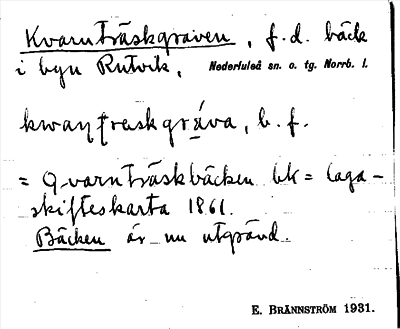 Kvarnträskgraven, f.d. bäck
i byn Rutvik, Nederluleå sn. o. tg. Norrb. l.
b. f.
= Qvarnträskbäcken bk = laga-
skifteskarta 1861.
Bäcken är nu utgrävd.
E. BRÄNNSTRÖM 1931.